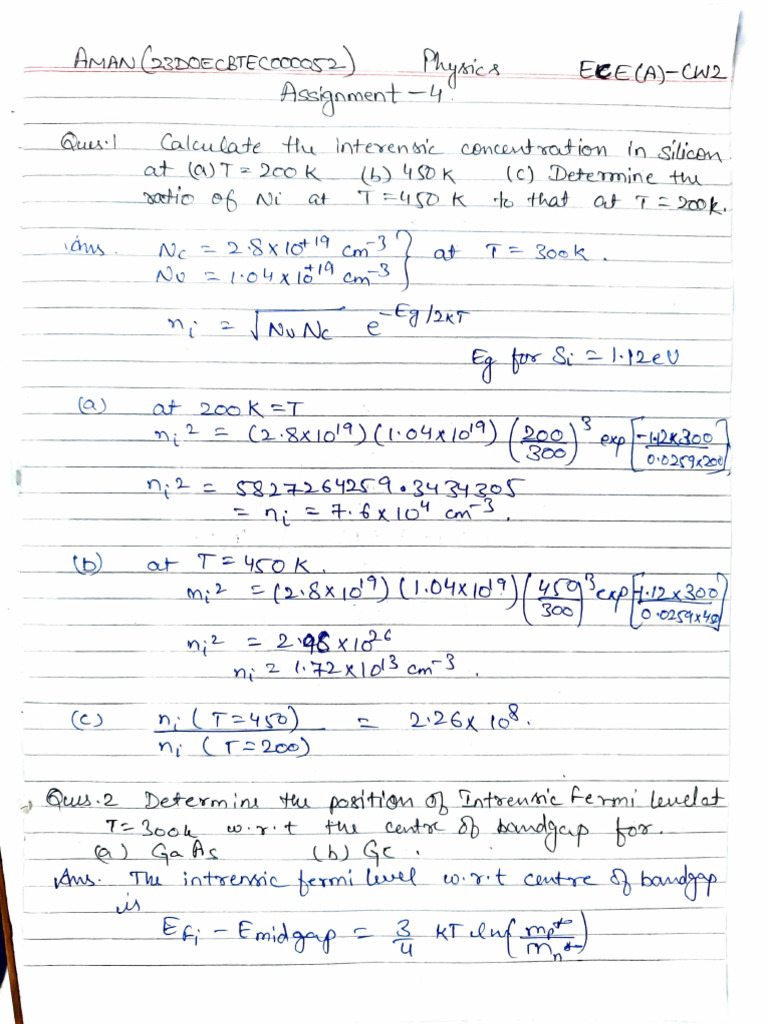 AMAN(23DOECBTEC000052) Physics ECE(A)-CW2
Assignment-4.
Ques.1 Calculate the interensic concentration in silicon
at (a) T=200K (b) 450K (c) Determine the
ratio of Ni at T=450 K to that at T=200k.
Ans. Nc = 2.8×10^+19 cm^-3 } at T = 300K.
Nv = 1.04×10^+19 cm^-3
ni = √NvNc e^-Eg/2KT
Eg for Si = 1.12eV
(a) at 200K=T
ni^2 = (2.8×10^19)(1.04×10^19) (200/300)^3 exp[-1.12×300/0.0259×200]
ni^2 = 5827264259.3434305
= ni = 7.6×10^4 cm^-3.
(b) at T=450K.
ni^2 = (2.8×10^19)(1.04×10^19)(450/300)^3 exp[-1.12×300/0.0259×450]
ni^2 = 2.98×10^26
ni = 1.72×10^13 cm^-3.
(c) ni (T=450) / ni (T=200) = 2.26×10^8.
Ques.2 Determine the position of Intrensic Fermi level at
T=300k w.r.t the centre of bandgap for.
(a) GaAs (b) Ge.
Ans. The intrensic fermi level w.r.t centre of bandgap
is
EFi - Emidgap = 3/4 KT ln(mp*/mn*)